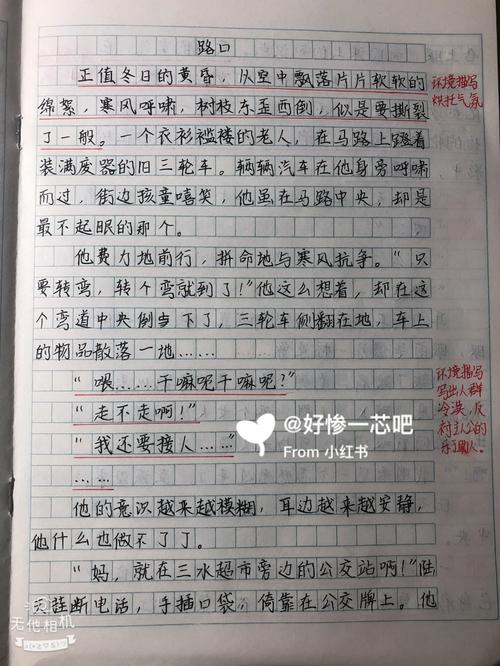 路口
正值冬日的黄昏，从空中飘落片片软软的
绵絮，寒风呼啸，树枝东歪西倒，似是要撕裂
了一般。一个衣衫褴褛的老人，在马路上蹬着
装满废器的旧三轮车。辆辆汽车在他身旁呼啸
而过，街边孩童嘻笑，他虽在马路中央，却是
最不起眼的那个。
他费力地前行，拼命地与寒风抗争。“只
要转弯，转个弯就到了！”他这么想着，却在这
个弯道中央倒当下了，三轮车侧翻在地，车上
的物品散落一地……
“喂……干嘛呢干嘛呢？”
“走不走啊！”
“我还要接人……”
……
他的意识越来越模糊，耳边越来越安静，
他什么也做不了了。
“妈，就在三水超市旁边的公交站啊！”陆
天挂断电话，手插口袋，倚靠在公交牌上。他
环境描写
烘托气氛
环境描写
写出人群
冷漠，反
衬主人公的
乐于助人。
@好惨一芯吧
From 小红书
无他相机